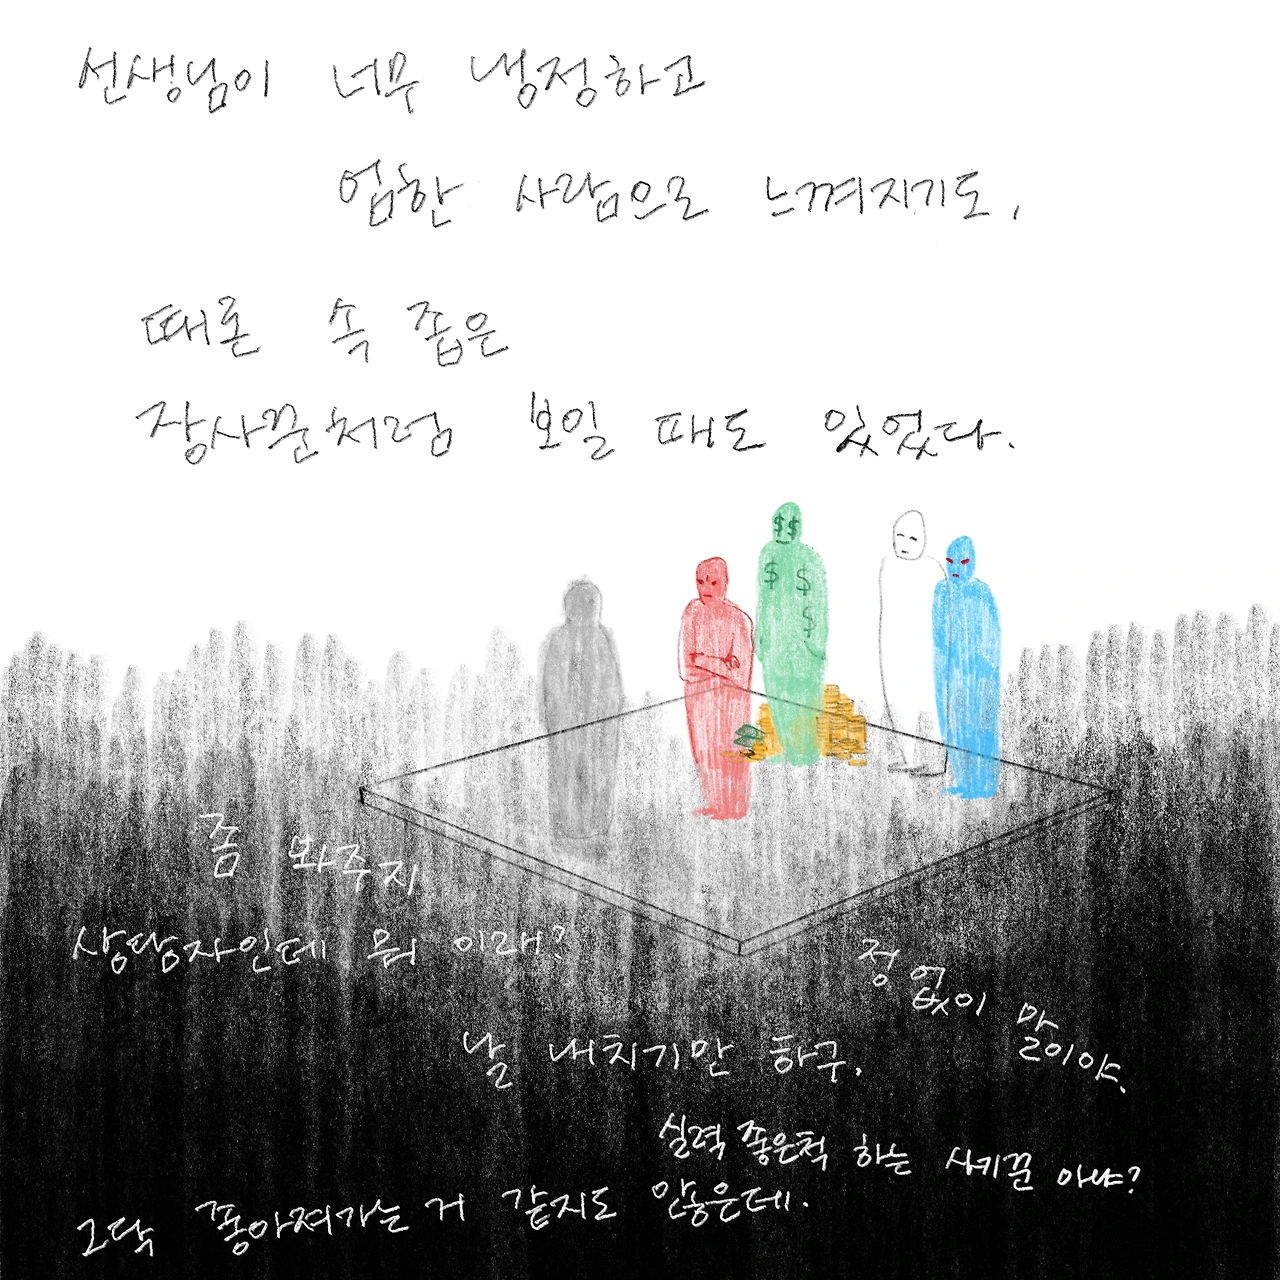 선생님이 너무 냉정하고
엄한 사람으로 느껴지기도,
때론 속 좁은
장사꾼처럼 보일 때도 있었다.
$$
$ $
$
좀 봐주지
상담자인데 뭐 이래?
정 없이 말이야.
날 내치기만 하구.
실력 좋은척 하는 사기꾼 아냐?
그닥 좋아져가는 거 같지도 않은데.